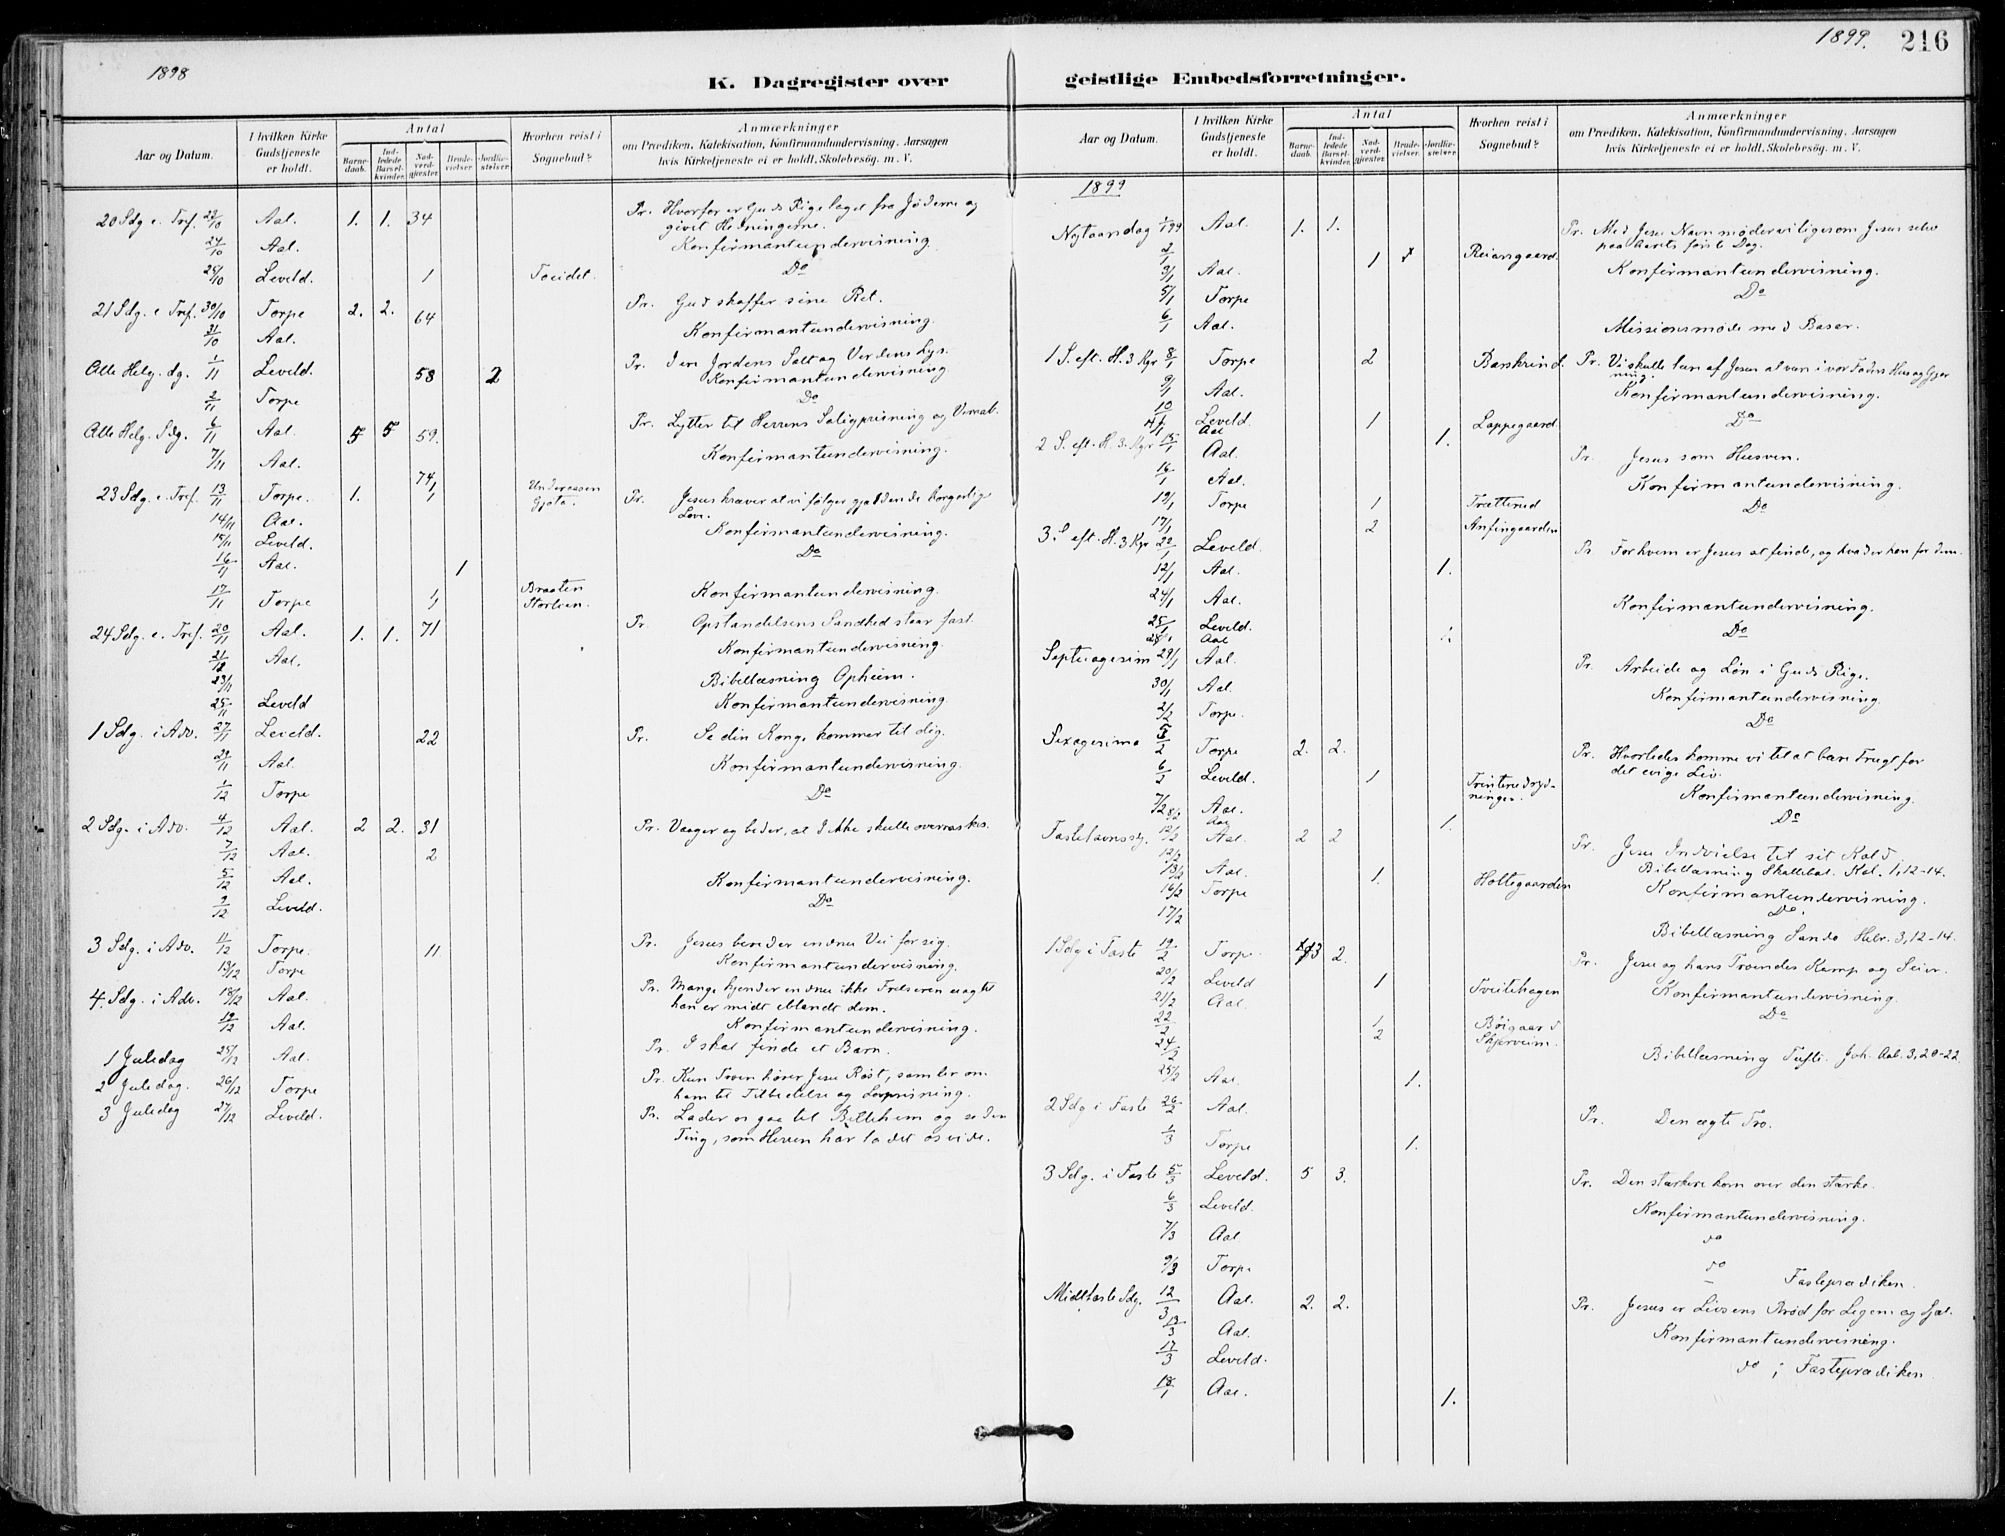 1898
K. Dagregister over
Aar og Datum.
I hvilken Kirke Gudstjeneste er holdt.
Antal
Barne-daab.
Ind-ledede Barsel-kvinder.
Nad-verd-gjæster.
Brude-vielser.
Jordfæ-stelser.
Hvorhen reist i Sognebud?
Anmærkninger
om Prædiken, Katekisation, Konfirmandundervisning. Aarsagen
hvis Kirketjeneste ei er holdt. Skolebesøg. m. V.
20 Sdg. e. Tref. 23/10 Aal. 1. 1. 34 Pr. Hvorfor er Guds Rige taget fra Jøderne og
givet Hedningerne.
24/10 Aal. Konfirmantundervisning.
25/10 Leveld. 1 Do
21 Sdg. e Tref. 30/10 Torpe 2. 2. 64 Pr. Gud skaffer sine Ret.
31/10 Aal. Konfirmantundervisning.
Alle Helg. dg. 1/11 Leveld. 58 2 Pr. I ere Jordens Salt og Verdens Lys.
Konfirmantundervisning
2/11 Torpe Do
Alle Helg. Sdg. 6/11 Aal. 5 5 59. Pr. Lytter til Herrens Saligprisning og Veraab.
7/11 Aal. Konfirmantundervisning.
23 Sdg. e. Tref. 13/11 Torpe. 1. 74 1 Pr. Jesus kræver at vi følger gjældende borgerlige
Love.
14/11 Aal. Konfirmantundervisning.
15/11 Leveld. Do
16/11 Aal. 1
17/11 Torpe 1 Braaten Konfirmantundervisning.
24 Sdg. e. Tref. 20/11 Aal. 1. 1. 71 Pr. Opstandelsens Sandhed staar fast.
21/11 Aal. Konfirmantundervisning.
23/11 Bibellæsning Opheim.
25/11 Leveld Konfirmantundervisning
1 Sdg. i Adv. 27/11 Leveld. 22 Pr. Se din Konge kommer til dig.
Aal. Konfirmantundervisning.
1/12 Torpe Do
2 Sdg. i Adv. 4/12 Aal. 2 2. 31 Pr. Vaager og beder, at I ikke skulle overraskes.
7/12 Aal. 2
5/12 Aal. Konfirmantundervisning.
9/12 Leveld. Do
3 Sdg. i Adv. 11/12 Torpe. 11 Pr. Jesus bereder endnu Vei for sig.
13/12 Torpe Konfirmantundervisning.
4. Sdg. i Adv. 18/12 Aal. Pr. Mange kjender endnu ikke Frelseren uagtet
han er midt iblandt dem.
19/12 Aal. Konfirmantundervisning.
1 Juledag 25/12 Aal. Pr. I skal finde et Barn.
2 Juledag. 26/12 Torpe Pr. Kun Troen hører Jesu Røst, samler om
ham til Tilbedelse og Lovprisning.
3 Juledag 27/12 Leveld. Pr. Lader os gaa til Betlehem og se den
Ting, som Herren har ladet os vide.
1899. 216
geistlige Embedsforretninger.
Aar og Datum.
I hvilken Kirke Gudstjeneste er holdt.
Antal
Barne-daab.
Ind-ledede Barsel-kvinder.
Nad-verd-gjæster.
Brude-vielser.
Jordfæ-stelser.
Hvorhen reist i Sognebud?
Anmærkninger
om Prædiken, Katekisation, Konfirmandundervisning. Aarsagen
hvis Kirketjeneste ei er holdt. Skolebesøg. m. V.
1899
Nytaarsdag 1/1 99 Aal. 1. 1. Pr. Med Jesu Navn møder vi ligesom Jesus selv
paa Aarets første Dag.
2/1 1
3/1 Aal. Konfirmantundervisning.
5/1 Torpe Do
6/1 Aal. Missionsmøde med Basar.
1 S. eft. H. 3 Kgr 8/1 Torpe 2 Pr. Vi skulle lære af Jesus at være i vor Faders Hus og Gjer
ning.
9/1 Aal. Konfirmantundervisning.
10 Leveld. 1 Loppegaard. Do
Aal 1.
2 S. eft. H. 3. Kgr 15/1 Aal. Pr. Jesus som Husven.
16/1 Aal. Konfirmantundervisning.
19/1 Torpe 1 Trætterud Do
17/1 2 Anfingaarden
3. S eft. H. 3 Kgr 22/1 Leveld. Pr. For hvem er Jesus at finde, og hvad er han for dem.
12/1 Aal. 1.
24/1 Aal. Konfirmantundervisning.
25/1 Leveld. Do
28/1 Aal
Septuagesim 29/1 Aal. Pr. Arbeide og Løn i Guds Rige.
30/1 Aal. Konfirmantundervisning.
2/2 Torpe. Do
Sexagesima 5/2 Torpe 2. 2. Pr. Hvorledes komme vi til at bære Frugt for
det evige Liv.
6/2 Leveld. 1 Konfirmantundervisning.
7/2 Aal. Do
8/2 Aal 1.
Fastelavnssdg. 12/2 Aal. 2 2 Pr. Jesu Indvielse til sit Kald
12/2 Bibellæsning Skattebøl. Kol. 1, 12-14.
13/2 Aal. 1. Holtegaarden Konfirmantundervisning.
16/2 Torpe Do.
17/2 Bibellæsning Sando Hebr. 3, 12-14.
1 Sdg i Faste 19/2 Torpe. 3 2. Pr. Jesu og hans Troendes Kamp og Seier.
20/2 Leveld 1 Tveitehagen Konfirmantundervisning.
21/2 Aal. Do
22/2 1 Bøigaard
2 Skjerveim.
24/2 Bibellæsning Tufte. Joh. Aab. 3, 20-22
25/2 Aal. 1.
2 Sdg i Faste 26/2 Aal. Pr. Den ægte Tro.
1/3 Torpe 1.
3 Sdg. i Faste 5/3 Leveld. 5 3. Pr. Den stærkere kom over den stærke.
6/3 Leveld. Konfirmantundervisning.
7/3 Aal do
9/3 Torpe do Fasteprædiken.
Midtfaste Sdg. 12/3 Aal. 2. 2. Pr. Jesus er Livsens Brød for Legem og Sjæl.
13/3 Aal. Konfirmantundervisning.
17/3 Leveld. do i Fasteprædiken
18/1 Aal. 1.